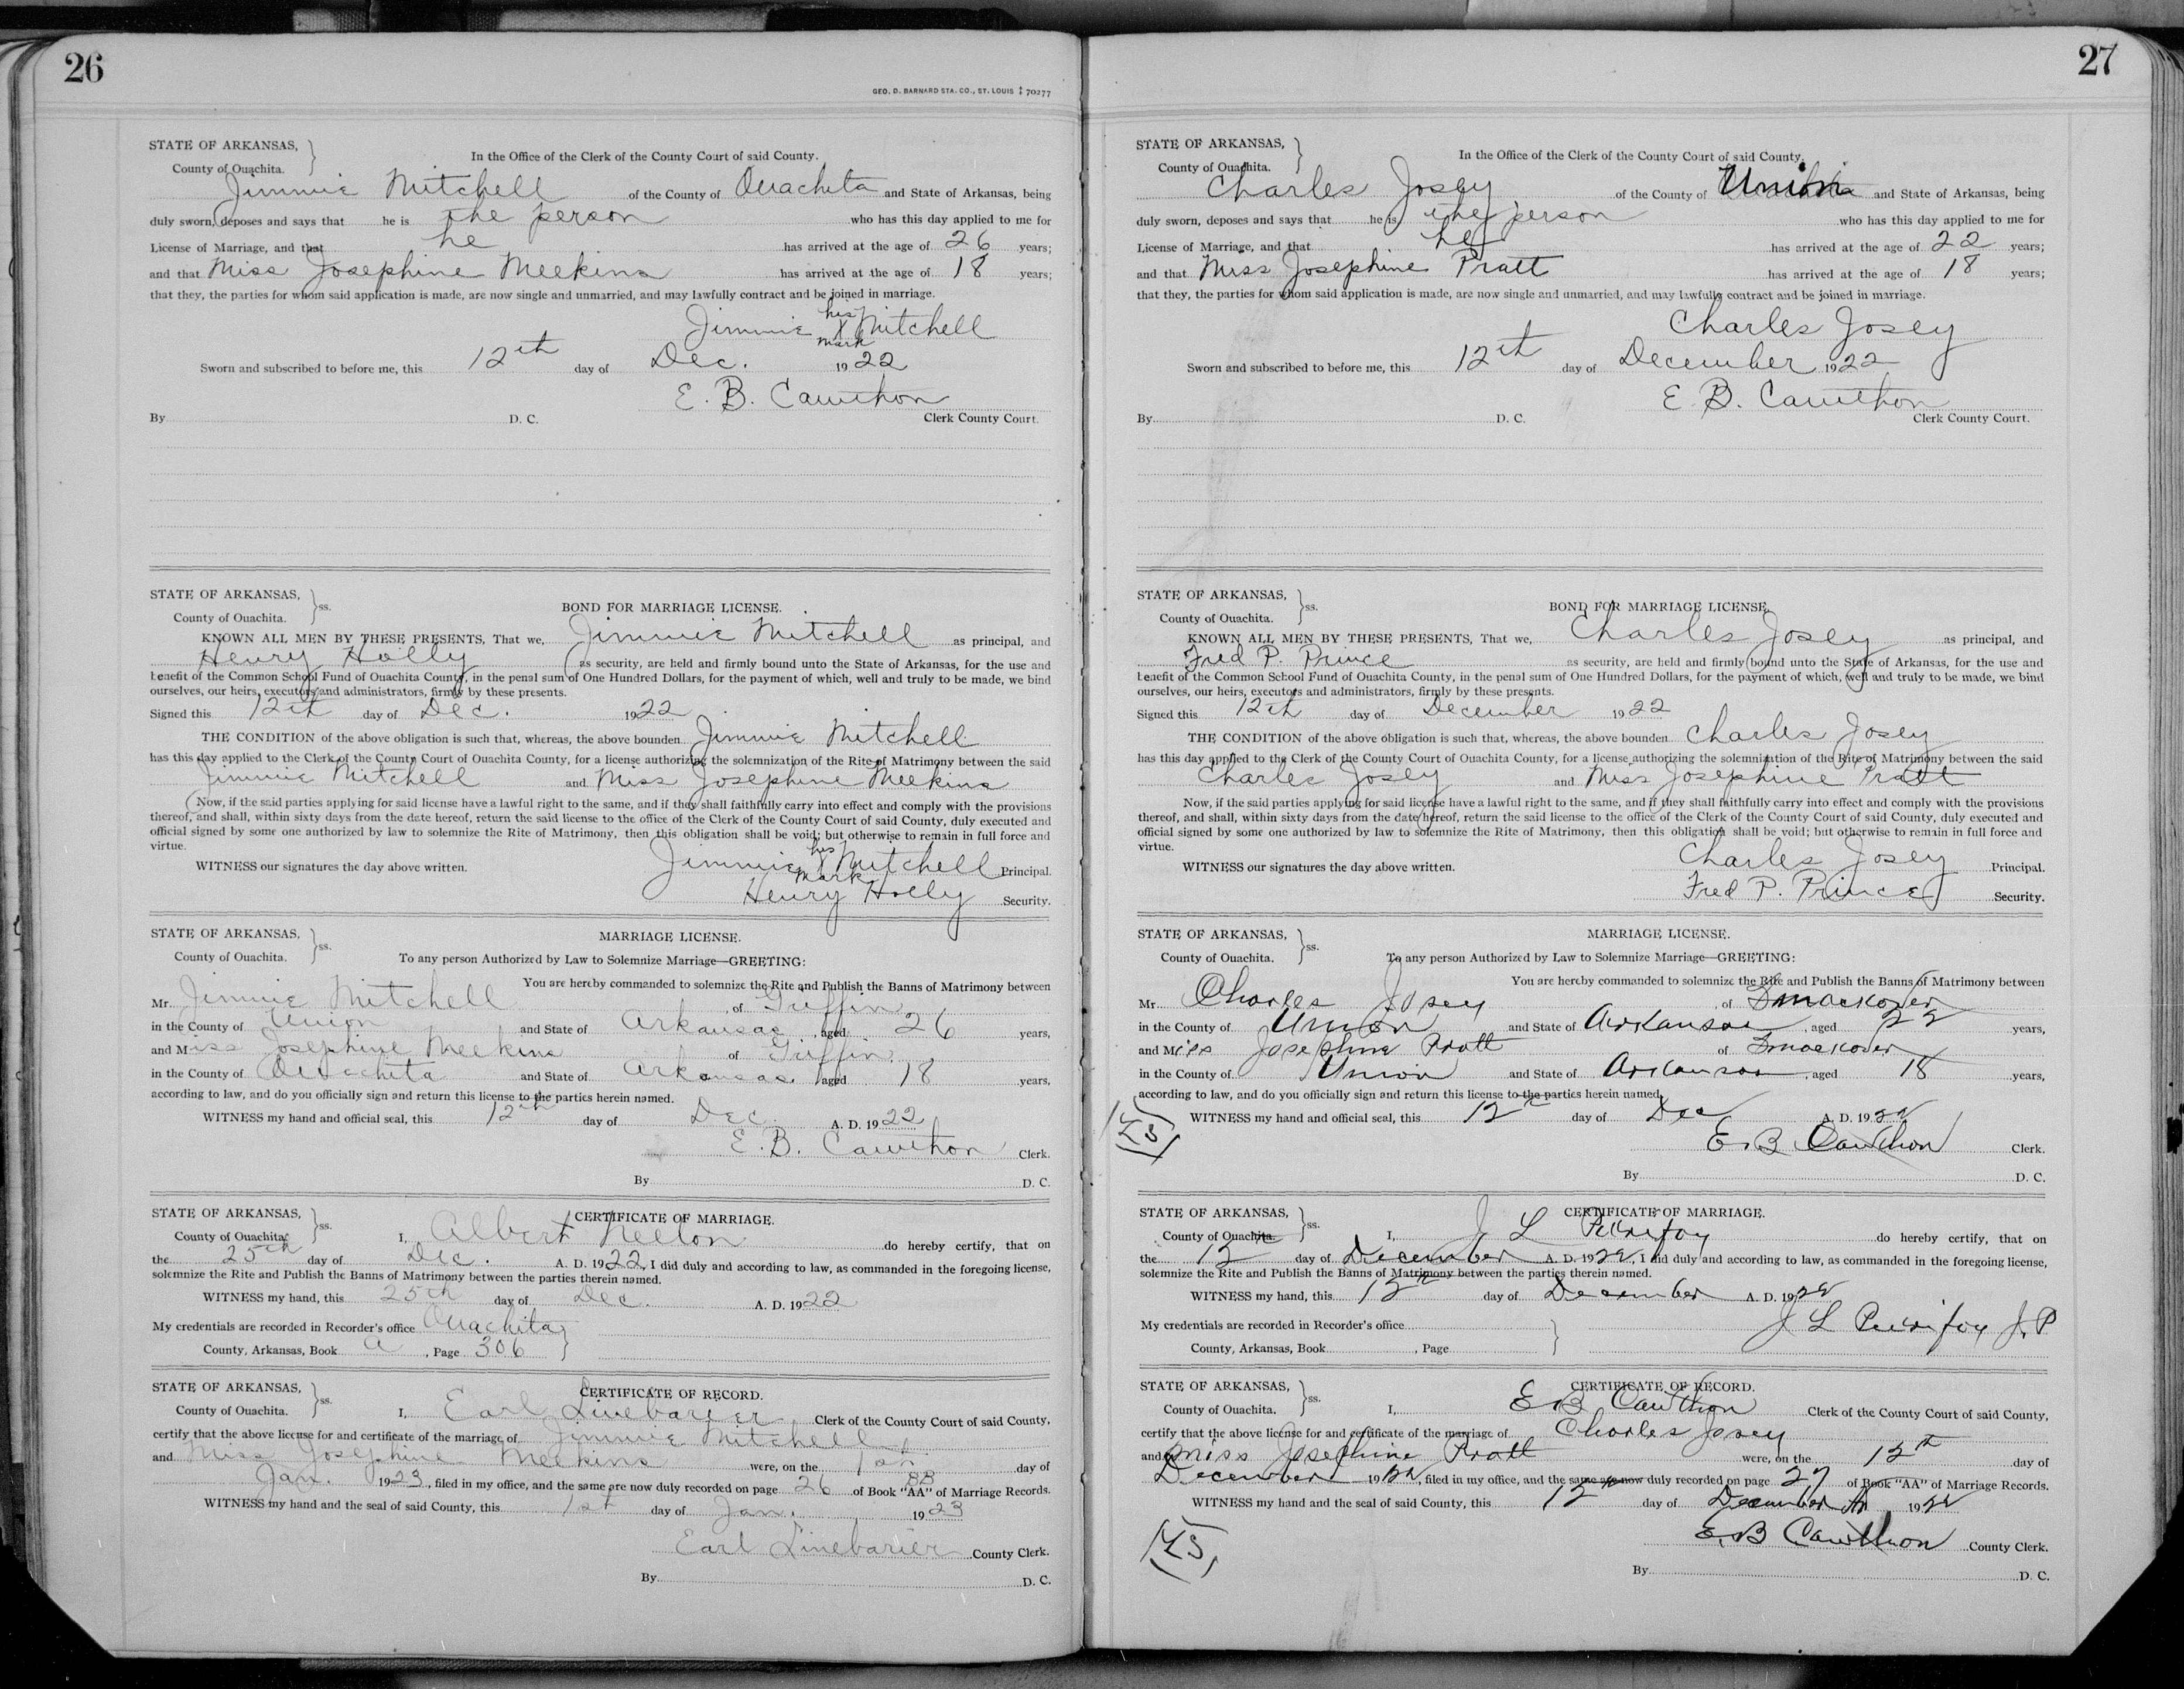 26
GEO. D. BARNARD STA. CO., ST. LOUIS 70277
STATE OF ARKANSAS,
County of Ouachita.
In the Office of the Clerk of the County Court of said County.
Jimmie Mitchell of the County of Ouachita and State of Arkansas, being
duly sworn, deposes and says that he is the person who has this day applied to me for
License of Marriage, and that he has arrived at the age of 26 years;
and that Miss Josephine Meekins has arrived at the age of 18 years;
that they, the parties for whom said application is made, are now single and unmarried, and may lawfully contract and be joined in marriage.
Jimmie his X mark Mitchell
Sworn and subscribed to before me, this 12th day of Dec. 1922
E. B. Cawthon
By D. C. Clerk County Court.
STATE OF ARKANSAS,
County of Ouachita. ss.
BOND FOR MARRIAGE LICENSE.
KNOWN ALL MEN BY THESE PRESENTS, That we, Jimmie Mitchell as principal, and
Henry Holly as security, are held and firmly bound unto the State of Arkansas, for the use and
benefit of the Common School Fund of Ouachita County, in the penal sum of One Hundred Dollars, for the payment of which, well and truly to be made, we bind
ourselves, our heirs, executors and administrators, firmly by these presents.
Signed this 12th day of Dec. 1922
THE CONDITION of the above obligation is such that, whereas, the above bounden Jimmie Mitchell
has this day applied to the Clerk of the County Court of Ouachita County, for a license authorizing the solemnization of the Rite of Matrimony between the said
Jimmie Mitchell and Miss Josephine Meekins
Now, if the said parties applying for said license have a lawful right to the same, and if they shall faithfully carry into effect and comply with the provisions
thereof, and shall, within sixty days from the date hereof, return the said license to the office of the Clerk of the County Court of said County, duly executed and
official signed by some one authorized by law to solemnize the Rite of Matrimony, then this obligation shall be void; but otherwise to remain in full force and
virtue.
WITNESS our signatures the day above written. Jimmie his X mark Mitchell Principal.
Henry Holly Security.
STATE OF ARKANSAS,
County of Ouachita. ss.
MARRIAGE LICENSE.
To any person Authorized by Law to Solemnize Marriage—GREETING:
You are hereby commanded to solemnize the Rite and Publish the Banns of Matrimony between
Mr. Jimmie Mitchell, of Griffin
in the County of Union and State of Arkansas, aged 26 years,
and Miss Josephine Meekins of Griffin
in the County of Ouachita and State of Arkansas. aged 18 years,
according to law, and do you officially sign and return this license to the parties herein named.
WITNESS my hand and official seal, this 12th day of Dec. A. D. 1922
E. B. Cawthon Clerk.
By D. C.
STATE OF ARKANSAS,
County of Ouachita. ss.
CERTIFICATE OF MARRIAGE.
I, Albert Neelon do hereby certify, that on
the 25th day of Dec. A. D. 1922, I did duly and according to law, as commanded in the foregoing license,
solemnize the Rite and Publish the Banns of Matrimony between the parties therein named.
WITNESS my hand, this 25th day of Dec. A. D. 1922
My credentials are recorded in Recorder's office Ouachita
County, Arkansas, Book A, Page 306
STATE OF ARKANSAS,
County of Ouachita. ss.
CERTIFICATE OF RECORD.
I, Earl Linebarier Clerk of the County Court of said County,
certify that the above license for and certificate of the marriage of Jimmie Mitchell
and Miss Josephine Meekins were, on the day of
Jan. 1923, filed in my office, and the same are now duly recorded on page 26 of Book "AA" BB of Marriage Records.
WITNESS my hand and the seal of said County, this 1st day of Jan. 1923
Earl Linebarier County Clerk.
By D. C.
27
STATE OF ARKANSAS,
County of Ouachita.
In the Office of the Clerk of the County Court of said County.
Charles Josey of the County of Union and State of Arkansas, being
duly sworn, deposes and says that he is the person who has this day applied to me for
License of Marriage, and that he has arrived at the age of 22 years;
and that Miss Josephine Pratt has arrived at the age of 18 years;
that they, the parties for whom said application is made, are now single and unmarried, and may lawfully contract and be joined in marriage.
Charles Josey
Sworn and subscribed to before me, this 12th day of December 1922
E. B. Cawthon
By D. C. Clerk County Court.
STATE OF ARKANSAS,
County of Ouachita. ss.
BOND FOR MARRIAGE LICENSE.
KNOWN ALL MEN BY THESE PRESENTS, That we, Charles Josey as principal, and
Fred P. Prince as security, are held and firmly bound unto the State of Arkansas, for the use and
benefit of the Common School Fund of Ouachita County, in the penal sum of One Hundred Dollars, for the payment of which, well and truly to be made, we bind
ourselves, our heirs, executors and administrators, firmly by these presents.
Signed this 12th day of December 1922
THE CONDITION of the above obligation is such that, whereas, the above bounden Charles Josey
has this day applied to the Clerk of the County Court of Ouachita County, for a license authorizing the solemnization of the Rite of Matrimony between the said
Charles Josey and Miss Josephine Pratt
Now, if the said parties applying for said license have a lawful right to the same, and if they shall faithfully carry into effect and comply with the provisions
thereof, and shall, within sixty days from the date hereof, return the said license to the office of the Clerk of the County Court of said County, duly executed and
official signed by some one authorized by law to solemnize the Rite of Matrimony, then this obligation shall be void; but otherwise to remain in full force and
virtue.
WITNESS our signatures the day above written. Charles Josey Principal.
Fred P. Prince Security.
STATE OF ARKANSAS,
County of Ouachita. ss.
MARRIAGE LICENSE.
To any person Authorized by Law to Solemnize Marriage—GREETING:
You are hereby commanded to solemnize the Rite and Publish the Banns of Matrimony between
Mr. Charles Josey of Smackover
in the County of Union and State of Arkansas, aged 22 years,
and Miss Josephine Pratt of Smackover
in the County of Union and State of Arkansas, aged 18 years,
according to law, and do you officially sign and return this license to the parties herein named.
(LS) WITNESS my hand and official seal, this 12th day of Dec A. D. 1922
E B Cawthon Clerk.
By D. C.
STATE OF ARKANSAS,
County of Ouachita. ss.
CERTIFICATE OF MARRIAGE.
I, J L Purifoy do hereby certify, that on
the 12 day of December A. D. 1922, I did duly and according to law, as commanded in the foregoing license,
solemnize the Rite and Publish the Banns of Matrimony between the parties therein named.
WITNESS my hand, this 12th day of December A. D. 1922
My credentials are recorded in Recorder's office J L Purifoy J. P
County, Arkansas, Book , Page
STATE OF ARKANSAS,
County of Ouachita. ss.
CERTIFICATE OF RECORD.
I, E B Cawthon Clerk of the County Court of said County,
certify that the above license for and certificate of the marriage of Charles Josey
and Miss Josephine Pratt were, on the 12th day of
December 1922, filed in my office, and the same are now duly recorded on page 27 of Book "AA" of Marriage Records.
WITNESS my hand and the seal of said County, this 12th day of December 1922
(LS) E. B Cawthon County Clerk.
By D. C.